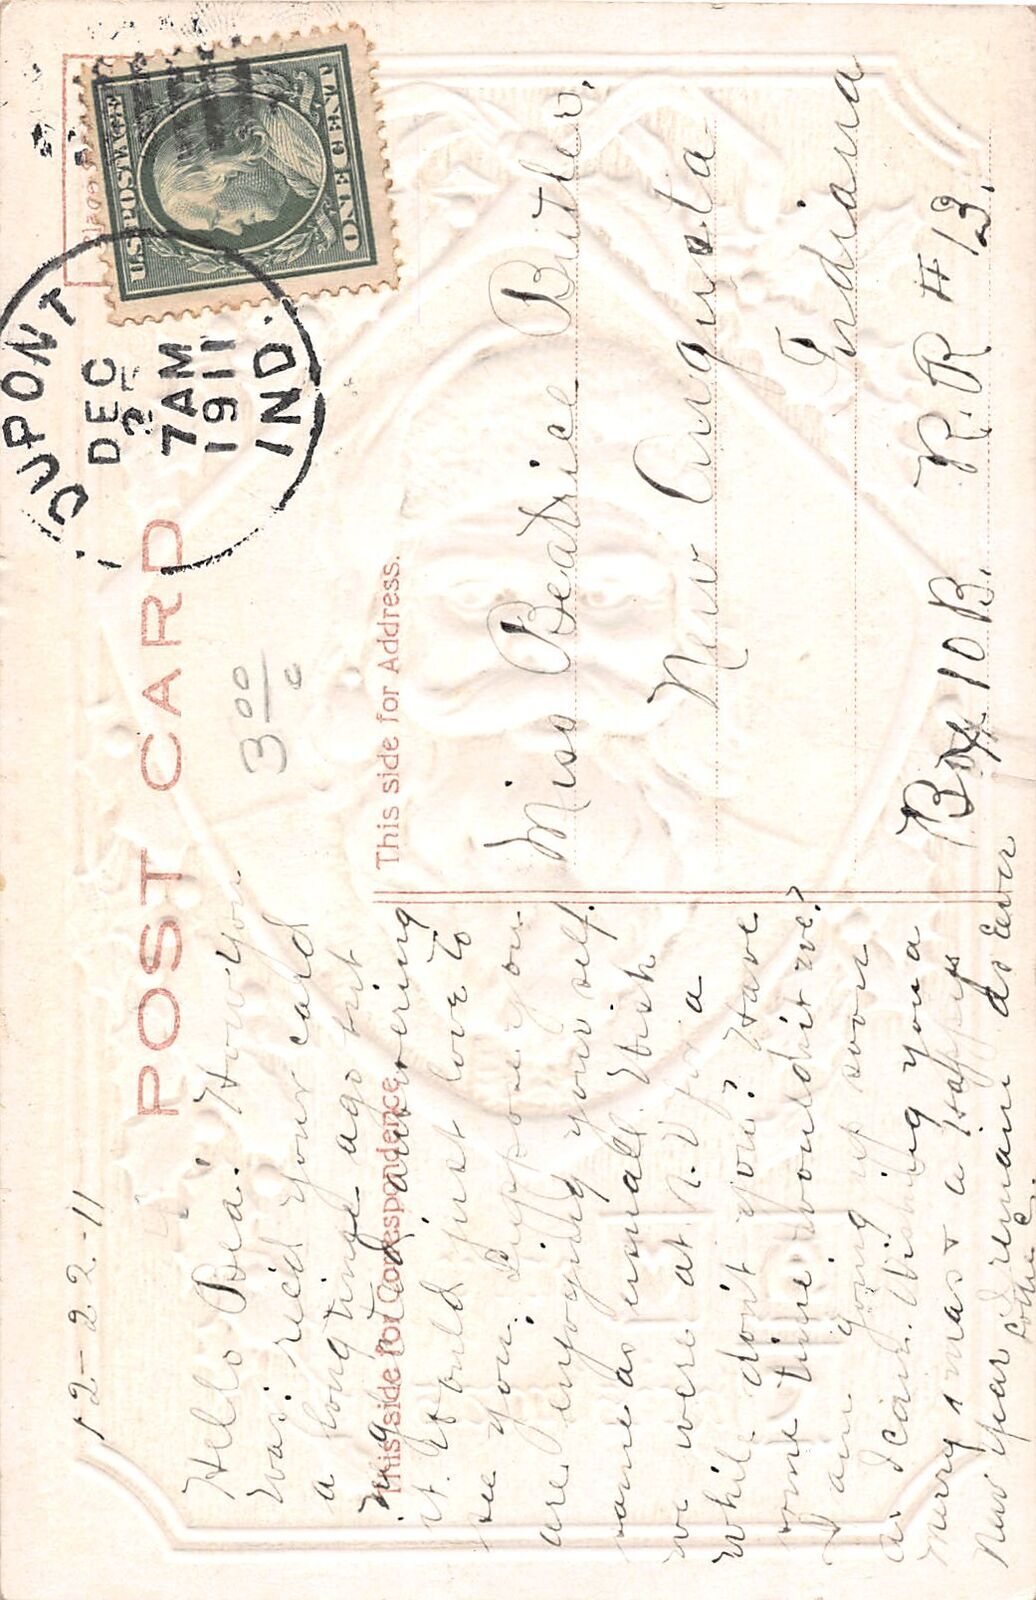 POST CARD
U.S. POSTAGE
ONE CENT
DUPONT
DEC
7 AM
1911
IND.
3 00
c
This side for Correspondence.
This side for Address.
12-22-11
Hello Bea: How you
was. rec'd your card
a long time ago but
neglected answering
it. Would just love to
see you. Suppose you
are enjoying your self.
same as usual. Wish
we were at N.V. for a
while don't you? Have
some time wouldn't we?
I am going up soon
as I can. Wishing you a
Merry Xmas & a Happy
New Year I remain as Ever
Miss Beatrice Butler,
New Augusta
Indiana
Box 10B. R.R # 13.